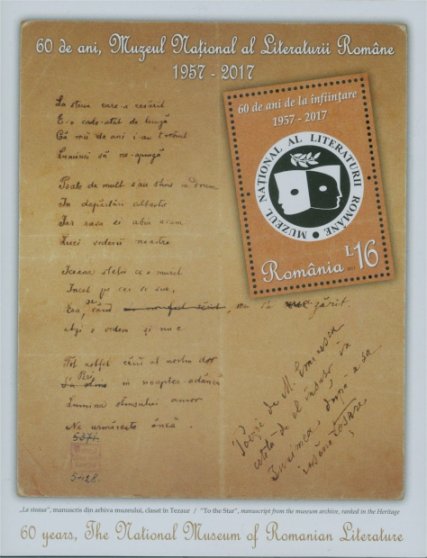 60 de ani, Muzeul Național al Literaturii Române
1957 - 2017
60 de ani de la înființare
1957 - 2017
MUZEUL NAȚIONAL AL LITERATURII ROMÂNE
România L16
La steaua care-a răsărit
E-o cale-atât de lungă
Că mii de ani i-au trebuit
Luminii să ne-ajungă
Poate de mult s-au stins în drum
În depărtări albastre
Iar raza ei abia acum
Luci vederii noastre
Icoana stelei ce-a murit
Încet pe cer se suie,
Era, când zărit
Azi o vedem și nu e
Tot astfel când al nostru dor
Pieri în noaptea adâncă
Lumina stinsului amor
Ne urmărește încă.
Poezie de M. Eminescu
de el însuși în
după a sa
însănătoșare
„La steaua", manuscris din arhiva muzeului, clasat în Tezaur / "To the Star", manuscript from the museum archive, ranked in the Heritage
60 years, The National Museum of Romanian Literature